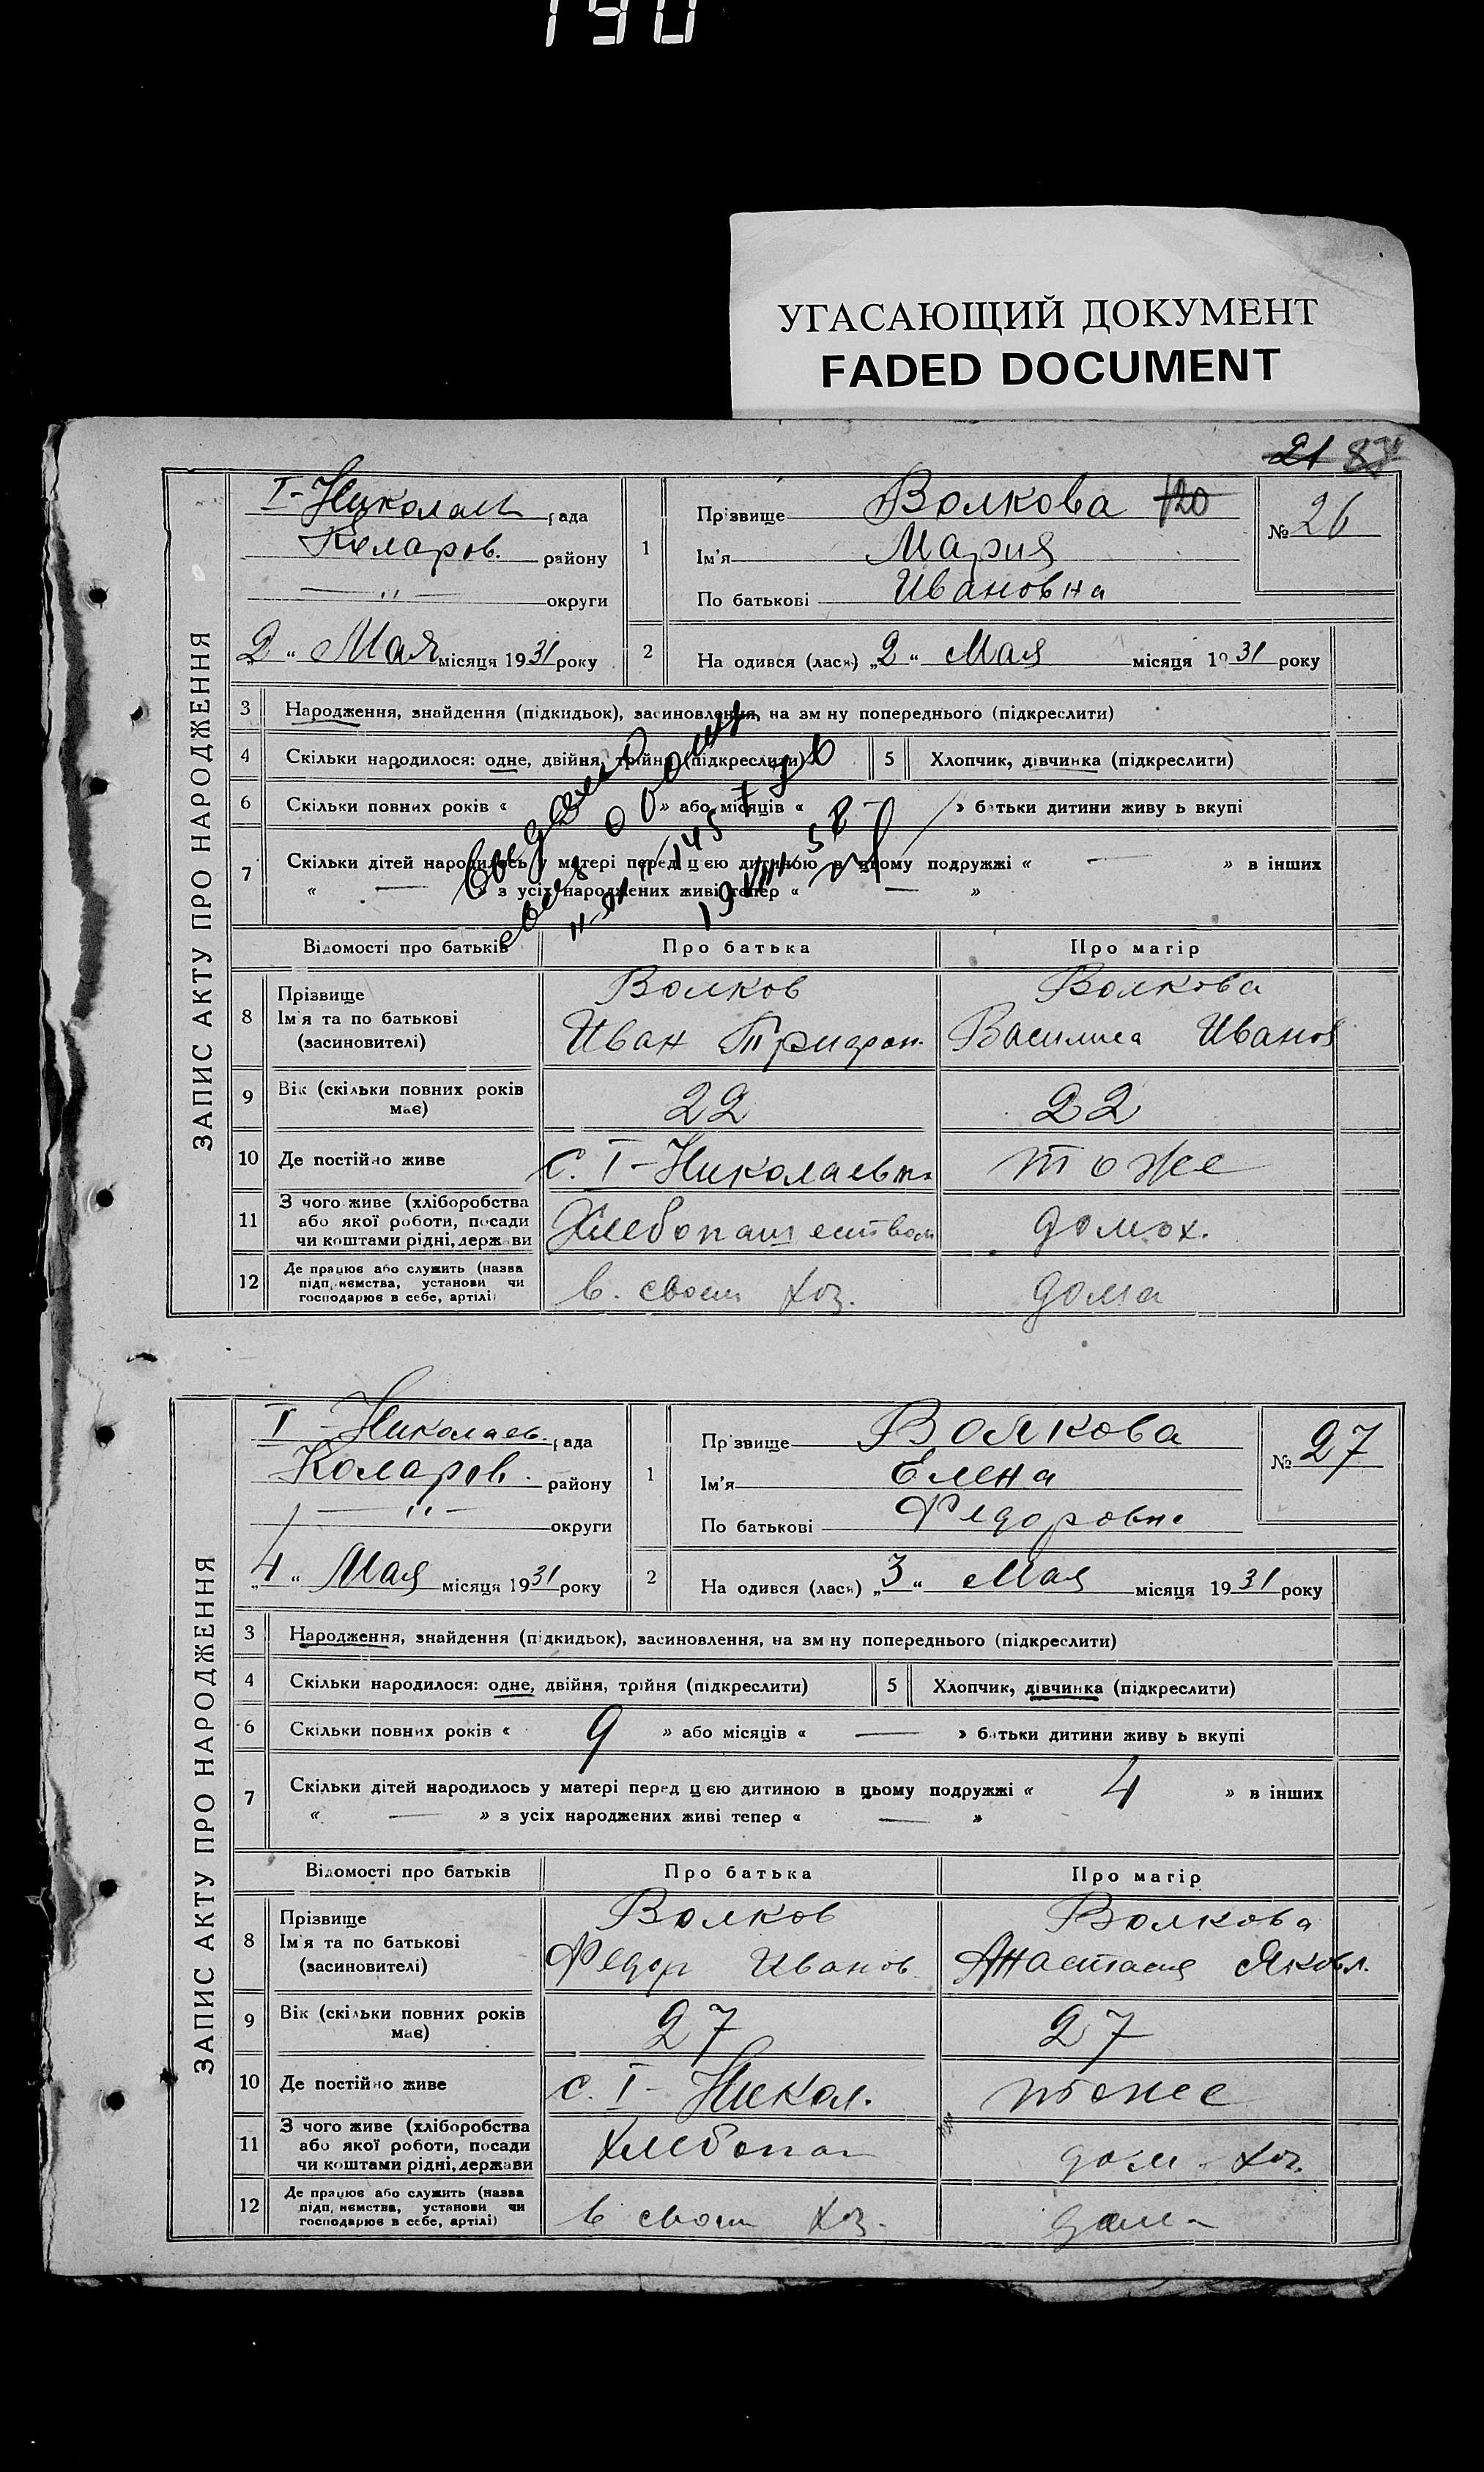 190
УГАСАЮЩИЙ ДОКУМЕНТ
FADED DOCUMENT
21 84
ЗАПИС АКТУ ПРО НАРОДЖЕННЯ
I-Николаев рада
Коларов. району
— " — округи
2 " Мая місяця 1931 року
1 Прізвище Волкова 120
Ім'я Мария
По батькові Ивановна
№ 26
2 На одився (лася) „2 " Мая місяця 1931 року
3 Народження, знайдення (підкидьок), засиновлення, на зм ну попереднього (підкреслити)
4 Скільки народилося: одне, двійня, трійня (підкреслити)
5 Хлопчик, дівчинка (підкреслити)
6 Скільки повних років « » або місяців « — » батьки дитини живу ь вкупі
7 Скільки дітей народилось у матері перед цією дитиною в цьому подружжі « — » в інших
« — » з усіх народжених живі тепер « — »
Відомості про батьків Про батька Про матір
8 Прізвище Волков Волкова
Ім'я та по батькові Иван Трифон. Василиса Иванов
(засиновителі)
9 Вік (скільки повних років має) 22 22
10 Де постійно живе с. I-Николаевка тоже
11 З чого живе (хліборобства
або якої роботи, посади
чи коштами рідні, держави Хлебопашеством домох.
12 Де працює або служить (назва
підприємства, установи чи
господарює в себе, артілі) в. своем хоз. дома
ЗАПИС АКТУ ПРО НАРОДЖЕННЯ
I-Николаев. рада
Коларов. району
— " — округи
„4 " Мая місяця 1931 року
1 Прізвище Волкова
Ім'я Елена
По батькові Федоровна
№ 27
2 На одився (лася) „3 " Мая місяця 1931 року
3 Народження, знайдення (підкидьок), засиновлення, на зм ну попереднього (підкреслити)
4 Скільки народилося: одне, двійня, трійня (підкреслити)
5 Хлопчик, дівчинка (підкреслити)
6 Скільки повних років « 9 » або місяців « — » батьки дитини живу ь вкупі
7 Скільки дітей народилось у матері перед цією дитиною в цьому подружжі « 4 » в інших
« — » з усіх народжених живі тепер « — »
Відомості про батьків Про батька Про матір
8 Прізвище Волков Волкова
Ім'я та по батькові Федор Иванов Анастасия Яковл.
(засиновителі)
9 Вік (скільки повних років має) 27 27
10 Де постійно живе с. I-Никол. тоже
11 З чого живе (хліборобства
або якої роботи, посади
чи коштами рідні, держави Хлебопаш дом. хоз.
12 Де працює або служить (назва
підприємства, установи чи
господарює в себе, артілі) в своем хоз. дома